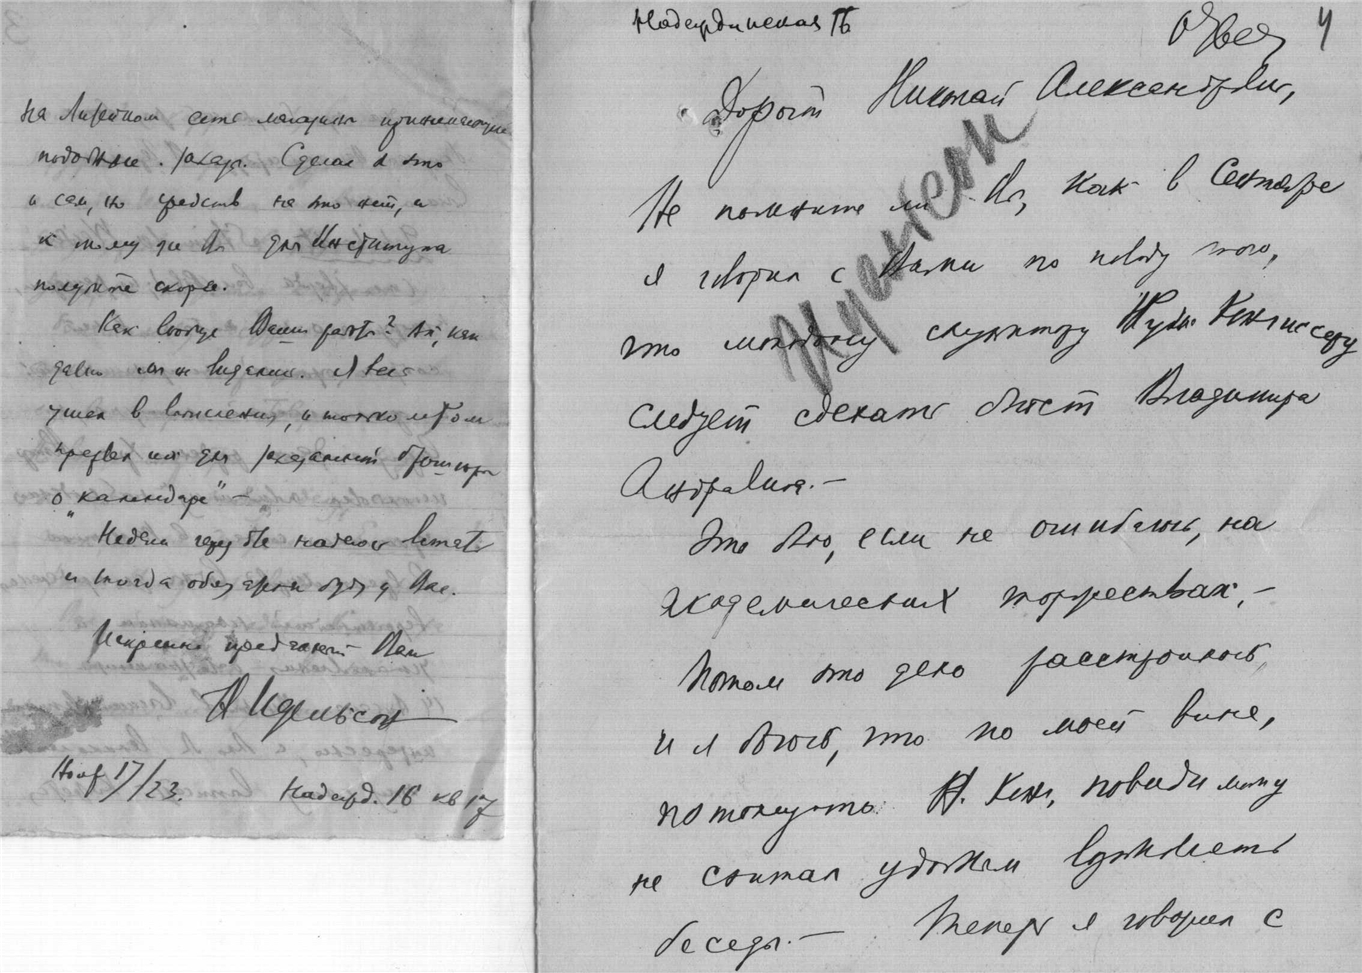 на Литейном есть магазины принимающие
подобные заказы. Сделал я это
и сам, но средств на это нет, и
к тому же Вы для Института
получите скорее.
Как вообще Ваши работы? Ай, как
давно мы не видались. Я весь
ушел в вычисления, и только летом
прервал их для заказанной брошюры
о "календаре" –
Недели через две надеюсь встать
и тогда обязательно буду у Вас.
Искренно преданный Вам
Н Идельсон
Нояб 17/23. Надежд. 16 кв 17
Надеждинская 16
4
Дорогой Николай Александрович,
Идельсон
Не помните ли Вы, как в Сентябре
я говорил с Вами по поводу того,
что молодому скульптору
следует сделать бюст Владимира
Андреевича. –
Это было, если не ошибаюсь, на
академических торжествах, –
Потом это дело расстроилось,
и я боюсь, что по моей вине,
потому что Н. Кен, повидимому
не считал удобным
беседы. – Теперь я говорил с